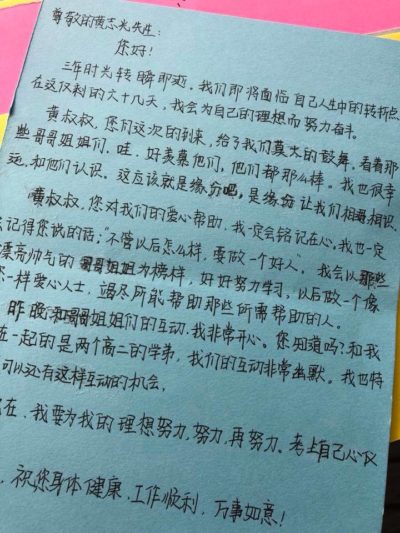 尊敬的黄志光先生:
您好!
三年时光转瞬即逝。我们即将面临自己人生中的转折点
在这仅剩的六十几天,我会为自己的理想而努力奋斗。
黄叔叔,您们这次的到来,给了我们莫大的鼓舞,看着那
些哥哥姐姐们,哇,好羡慕他们,他们都那么棒。我也很幸
运,和他们认识。这应该就是缘分吧,是缘分让我们相遇相识
黄叔叔,您对我们的爱心帮助,我一定会铭记在心。我也一定
记得您说的话,“不管以后怎么样,要做一个好人”。我会以那些
漂亮帅气的哥哥姐姐为榜样,好好努力学习,以后做一个像
您一样爱心人士,竭尽所能帮助那些所需帮助的人。
昨晚和哥哥姐姐们的互动,我非常开心。您知道吗?和我
在一起的是两个高二的学弟,我们的互动非常幽默。我也特
可以还有这样互动的机会。
在,我要为我的理想努力,努力,再努力。考上自己心仪
,祝您身体健康,工作顺利,万事如意!